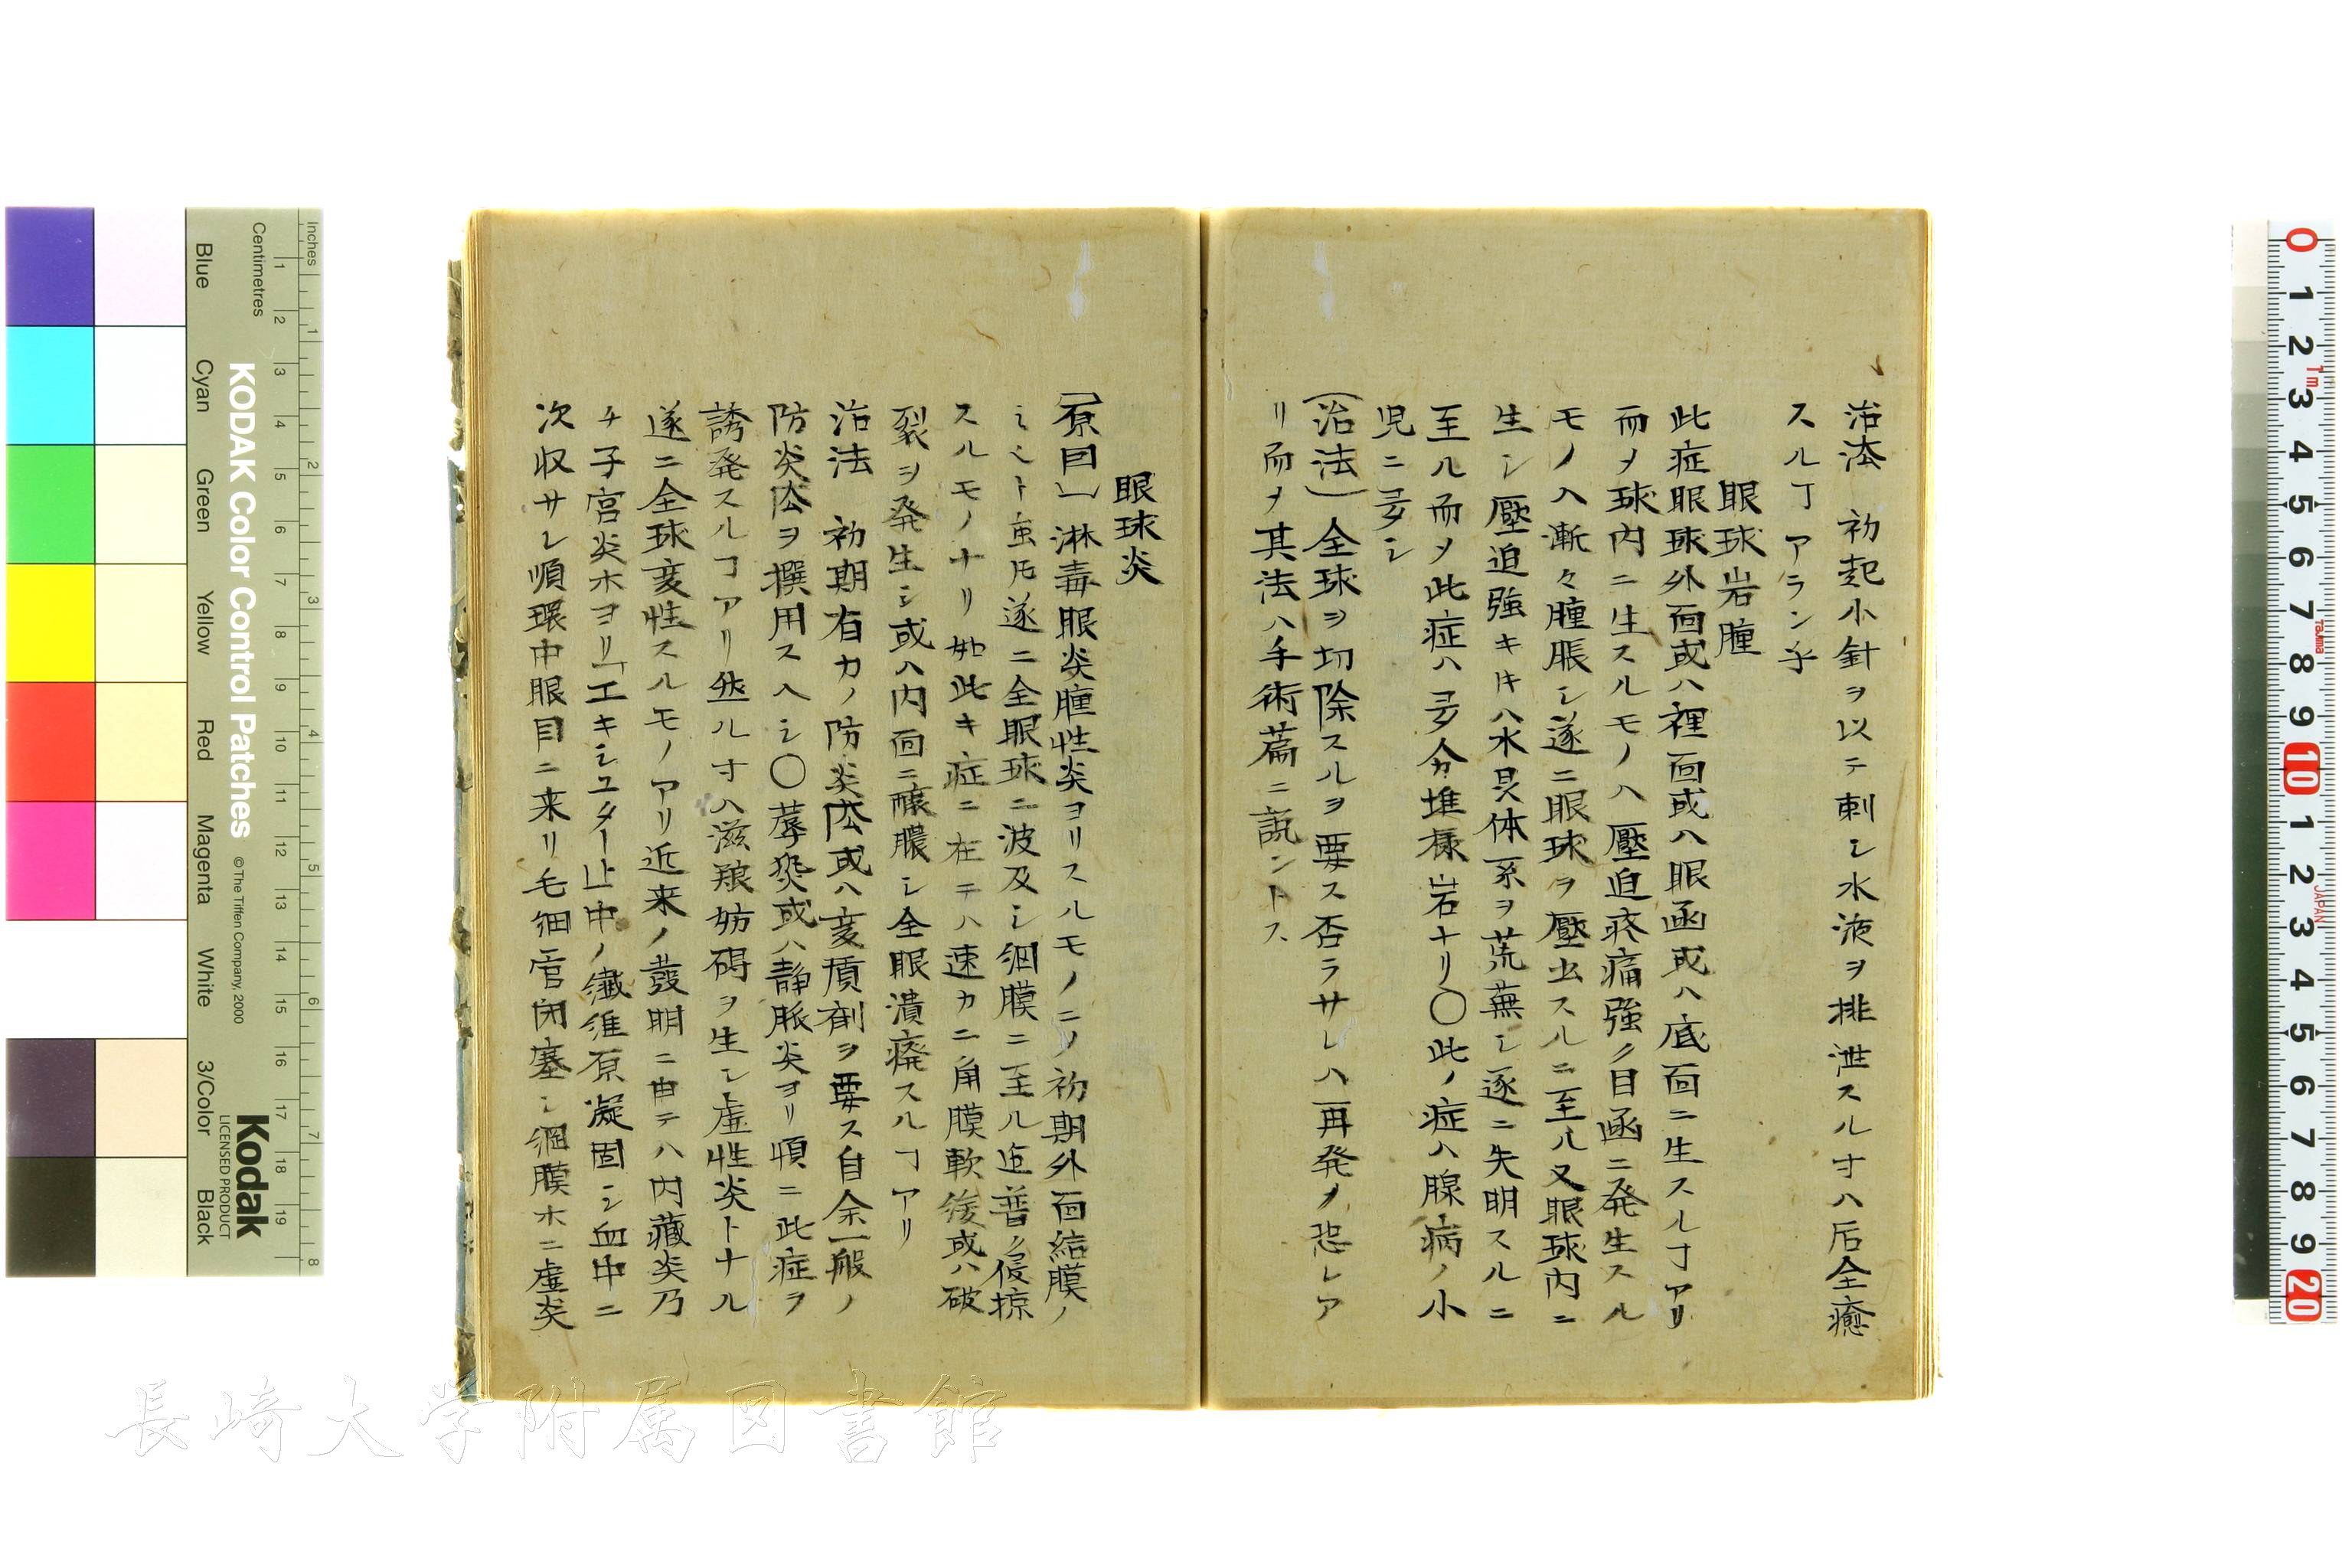 治法　初起小針ヲ以テ刺シ水液ヲ排泄スルヿハ后全癒
スルヿアラン乎
眼球岩腫
此症眼球外面或ハ裡面或ハ眼函或ハ底面ニ生スルヿアリ
而メ球内ニ生スルモノハ壓迫疼痛強ク目函ニ発生スル
モノハ漸々腫脹シ遂ニ眼球ヲ壓出スルニ至ル又眼球内ニ
生シ壓迫強キ𪜈ハ水晶体系ヲ荒蕪シ遂ニ失明スルニ
至ル而メ此症ハ多分堆様岩ナリ〇此ノ症ハ腺病ノ小
児ニ多シ
(治法) 全球ヲ切除スルヲ要ス否ラサレハ再発ノ恐レア
リ而メ其法ハ手術篇ニ説ントス
眼球炎
[原因] 淋毒眼炎腫性炎ヨリスルモノニメ初期外面結膜ノ
ミニト虽𪜈遂ニ全眼球ニ波及シ網膜ニ至ル迄普ク侵掠
スルモノナリ如此キ症ニ在テハ速カニ角膜軟緩或ハ破
裂ヲ発生シ或ハ内面ニ醸膿シ全眼潰廃スルヿアリ
治法　初期有力ノ防炎法或ハ変質剤ヲ要ス自余一般ノ
防炎法ヲ撰用スヘシ〇蓐熒或ハ静脈炎ヨリ順ニ此症ヲ
誘発スルヿアリ然ルヿハ滋養妨碍ヲ生シ虚性炎トナル
遂ニ全球変性スルモノアリ近来ノ發明ニ由テハ内蔵炎乃
チ子宮炎ホヨリ「エキシユター」止中ノ纎維原凝固シ血中ニ
次収サレ順環中眼目ニ来リ毛細管閉塞シ網膜ホニ虚炎
Inches
Centimetres
KODAK Color Control Patches
© The Tiffen Company, 2000
Kodak
LICENSED PRODUCT
Blue
Cyan
Green
Yellow
Red
Magenta
White
3/Color
Black
長崎大学附属図書館